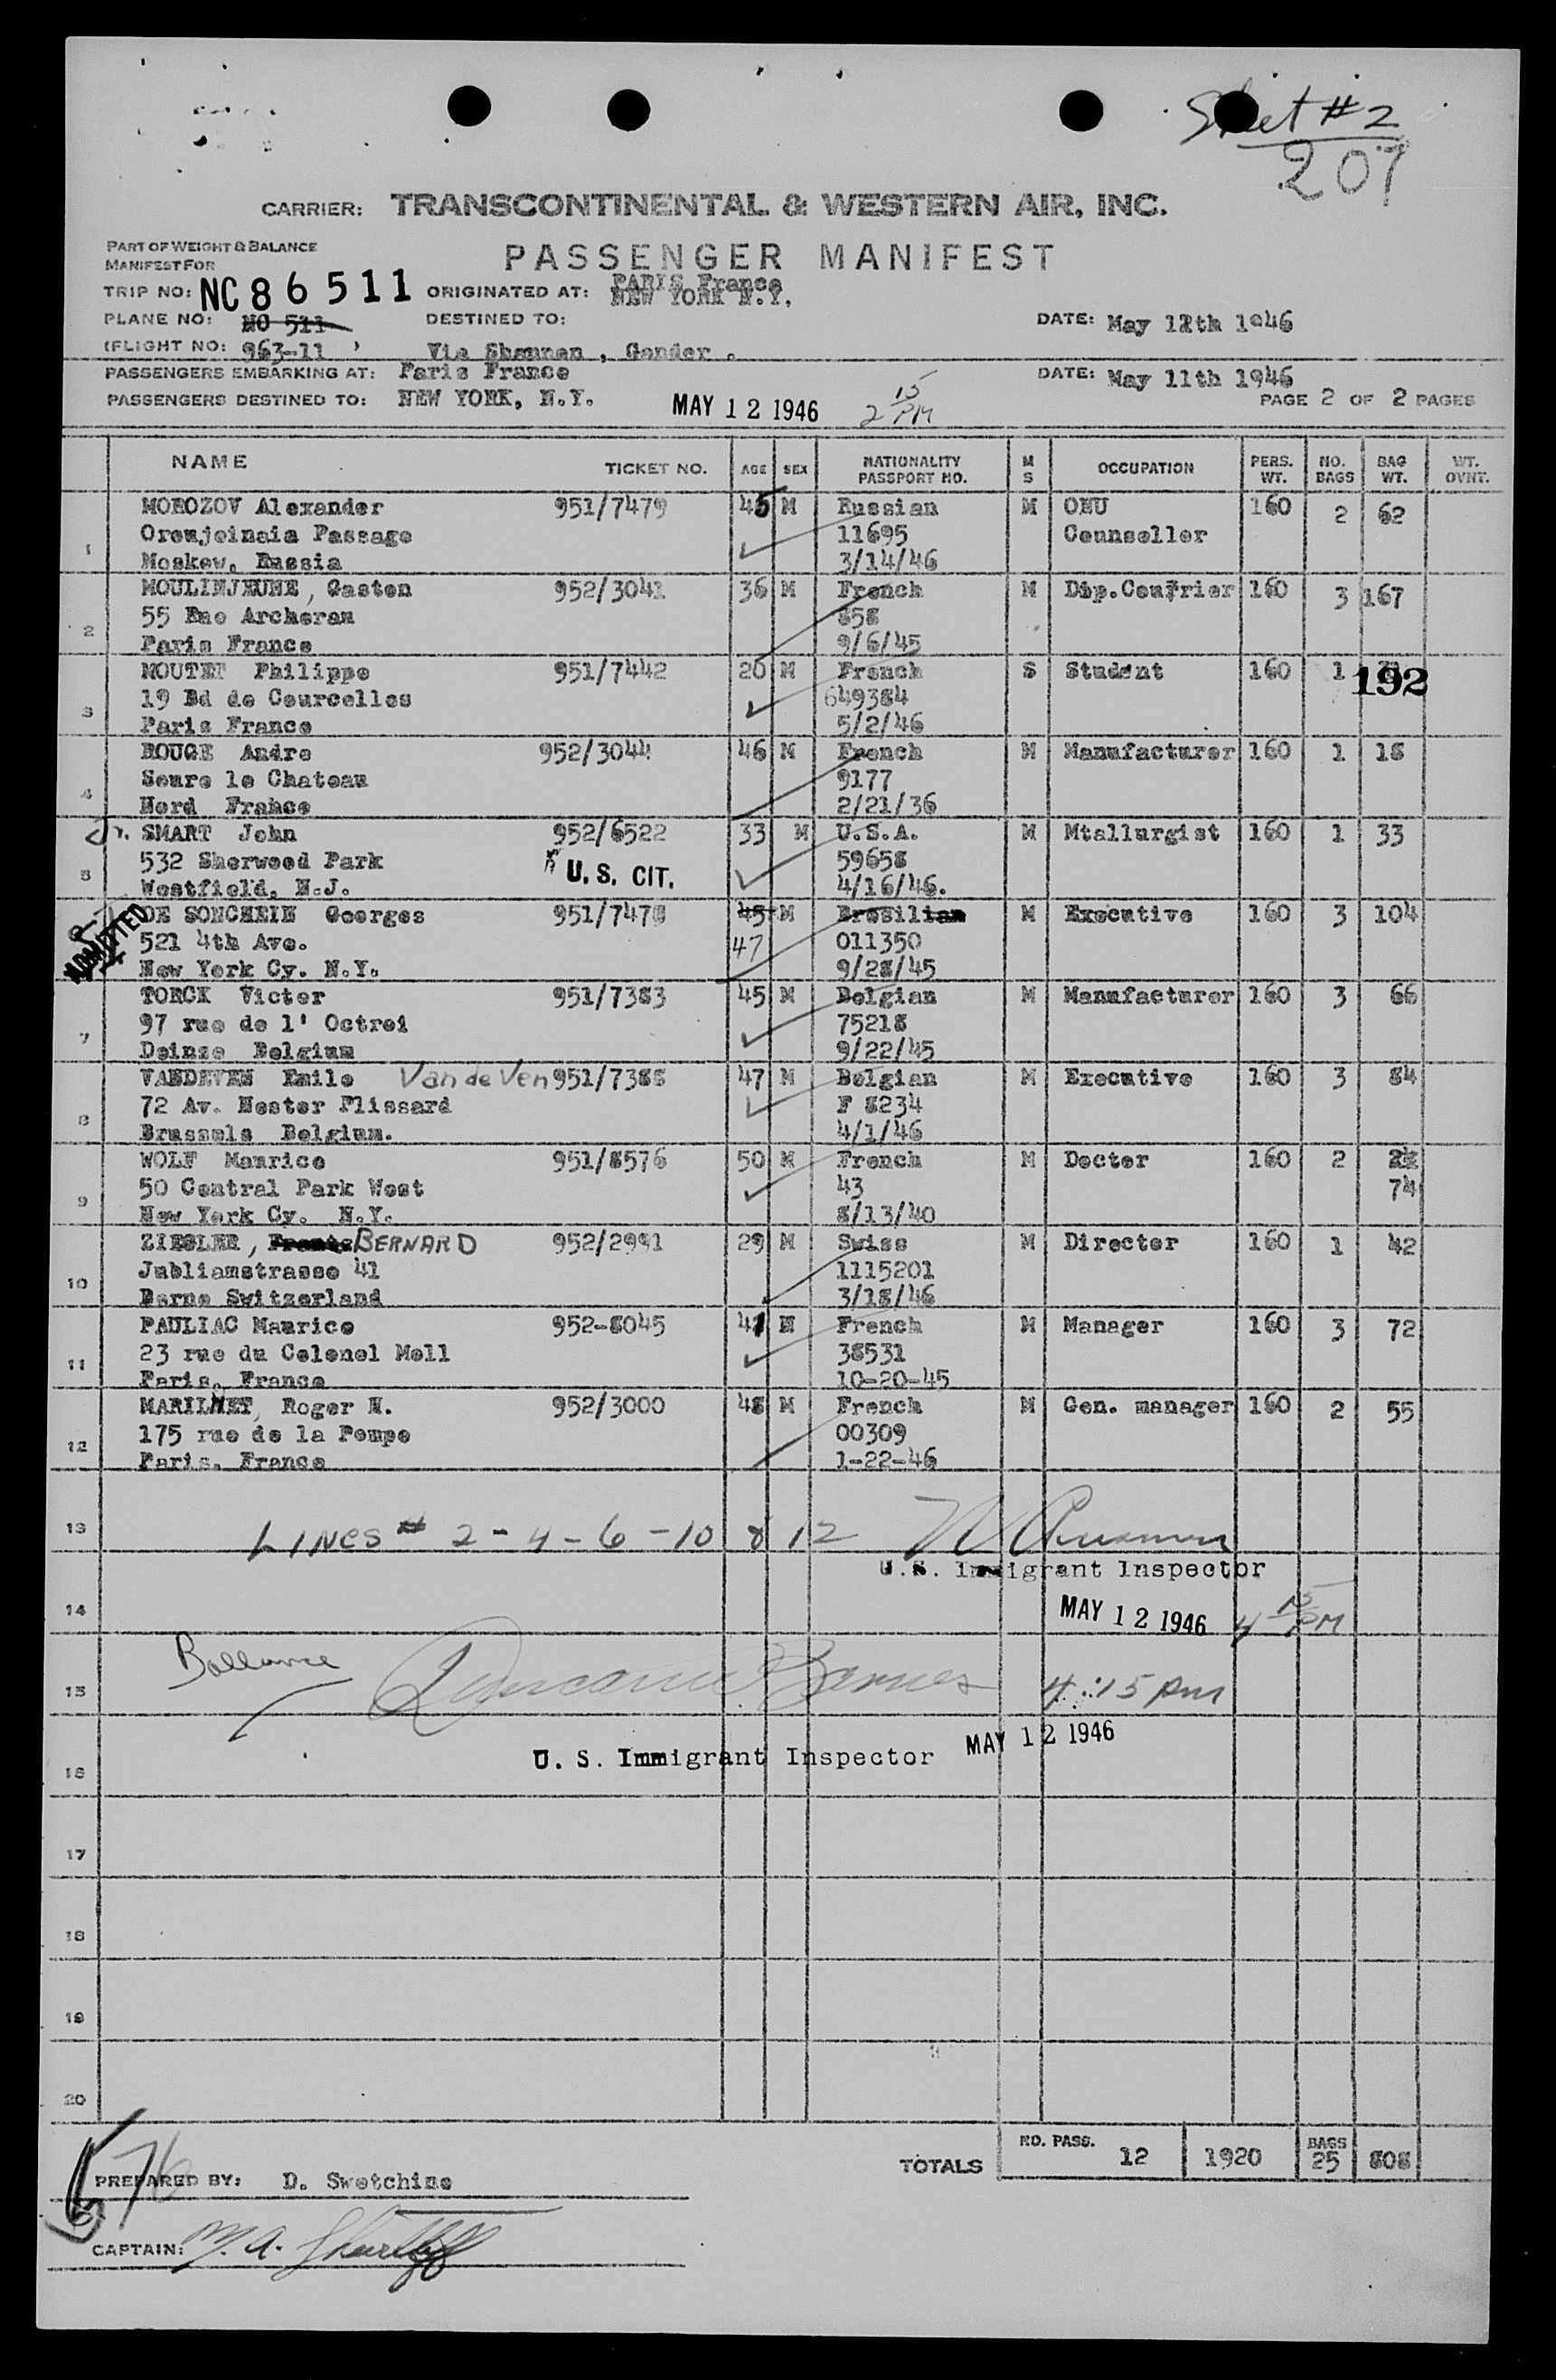 Sheet #2
207
CARRIER: TRANSCONTINENTAL & WESTERN AIR, INC.
PART OF WEIGHT & BALANCE
MANIFEST FOR
PASSENGER MANIFEST
TRIP NO: NC86511 ORIGINATED AT: PARIS France
NEW YORK N.Y.
PLANE NO: NO 511 DESTINED TO: DATE: May 12th 1946
(FLIGHT NO: 963-11 ) Via Shannan , Gander .
PASSENGERS EMBARKING AT: Paris France DATE: May 11th 1946
PASSENGERS DESTINED TO: NEW YORK, N.Y. MAY 12 1946 2 15 PM PAGE 2 OF 2 PAGES
NAME TICKET NO. AGE SEX NATIONALITY PASSPORT NO. M S OCCUPATION PERS. WT. NO. BAGS BAG WT. WT. OVNT.
MOROZOV Alexander 951/7479 45 M Russian M ONU 160 2 62
Oroujeinaia Passage 11695 Counseller
1 Moskow, Russia 3/14/46
MOULINJEUNE, Gaston 952/3041 36 M French M Dip.Courrier 160 3 167
55 Rue Archereau 858
2 Paris France 9/6/45
MOUTET Philippe 951/7442 20 M French S Student 160 1 192
19 Bd de Courcelles 649384
3 Paris France 5/2/46
ROUGE Andre 952/3044 46 M French M Manufacturer 160 1 18
Soure le Chateau 9177
4 Nord France 2/21/36
Jr. SMART John 952/6522 33 M U.S.A. M Mtallurgist 160 1 33
532 Sherwood Park U.S. CIT. 59658
5 Westfield, N.J. 4/16/46.
ADMITTED DE SONCHEIN Goerges 951/7478 45 M Bresilian M Executive 160 3 104
521 4th Ave. 47 011350
New York Cy. N.Y. 9/28/45
TORCK Victor 951/7383 45 M Belgian M Manufacturer 160 3 66
97 rue de l' Octroi 75218
7 Deinze Belgium 9/22/45
VANDEVEN Emile Van de Ven 951/7388 47 M Belgian M Executive 160 3 84
72 Av. Nestor Plissard F 8234
8 Brussels Belgium. 4/1/46
WOLF Maurice 951/8576 50 M French M Docter 160 2
50 Central Park West 43 74
9 New York Cy. N.Y. 8/13/40
ZIEGLER, Frantz BERNARD 952/2991 29 M Swiss M Director 160 1 42
Jubliamstrasse 41 1115201
10 Berne Switzerland 3/18/46
PAULIAC Maurice 952-8045 41 M French M Manager 160 3 72
23 rue du Colonel Moll 38531
11 Paris, France 10-20-45
MARILNET, Roger N. 952/3000 48 M French M Gen. manager 160 2 55
175 rue de la Pompe 00309
12 Paris, France 1-22-46
13 LINES # 2-4-6-10 & 12
U.S. Immigrant Inspector
14 MAY 12 1946 4 15 PM
Ballance
15 4:15 pm
MAY 12 1946
16 U. S. Immigrant Inspector
17
18
19
20
TOTALS NO. PASS. 12 1920 BAGS 25 808
76
PREPARED BY: D. Swetchine
CAPTAIN: M. A.